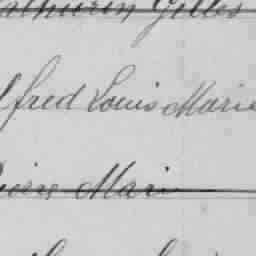 athurin Gilles
lfred Louis Marie
Pierre Mari